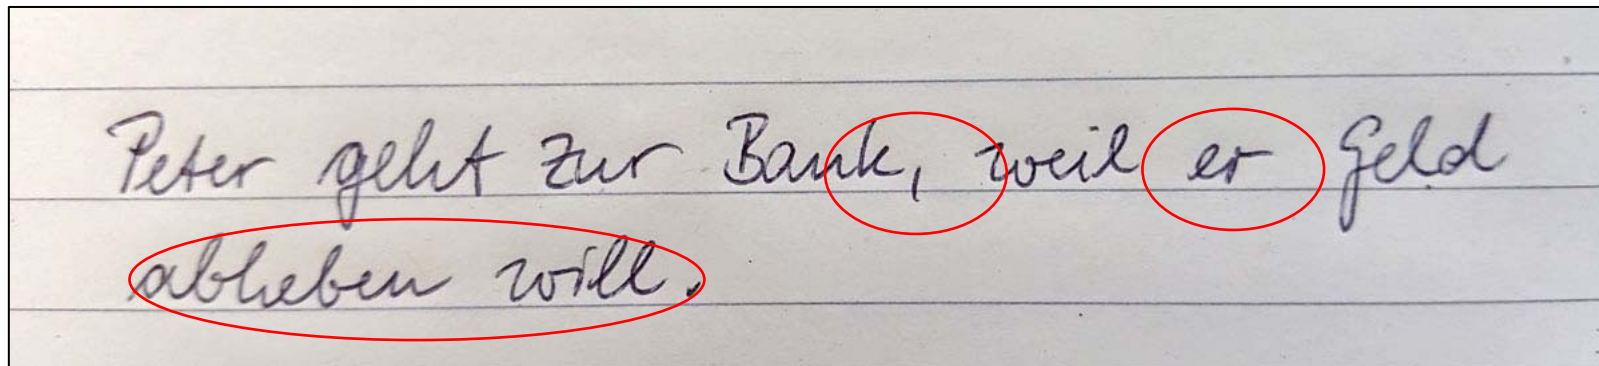 Peter geht zur Bank, weil er Geld
abheben will.